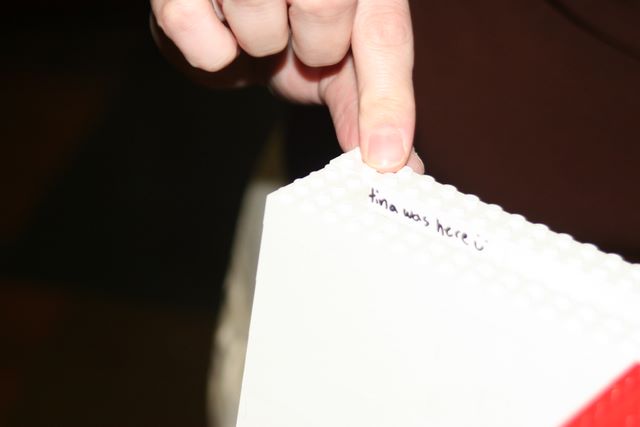 tina was here :)